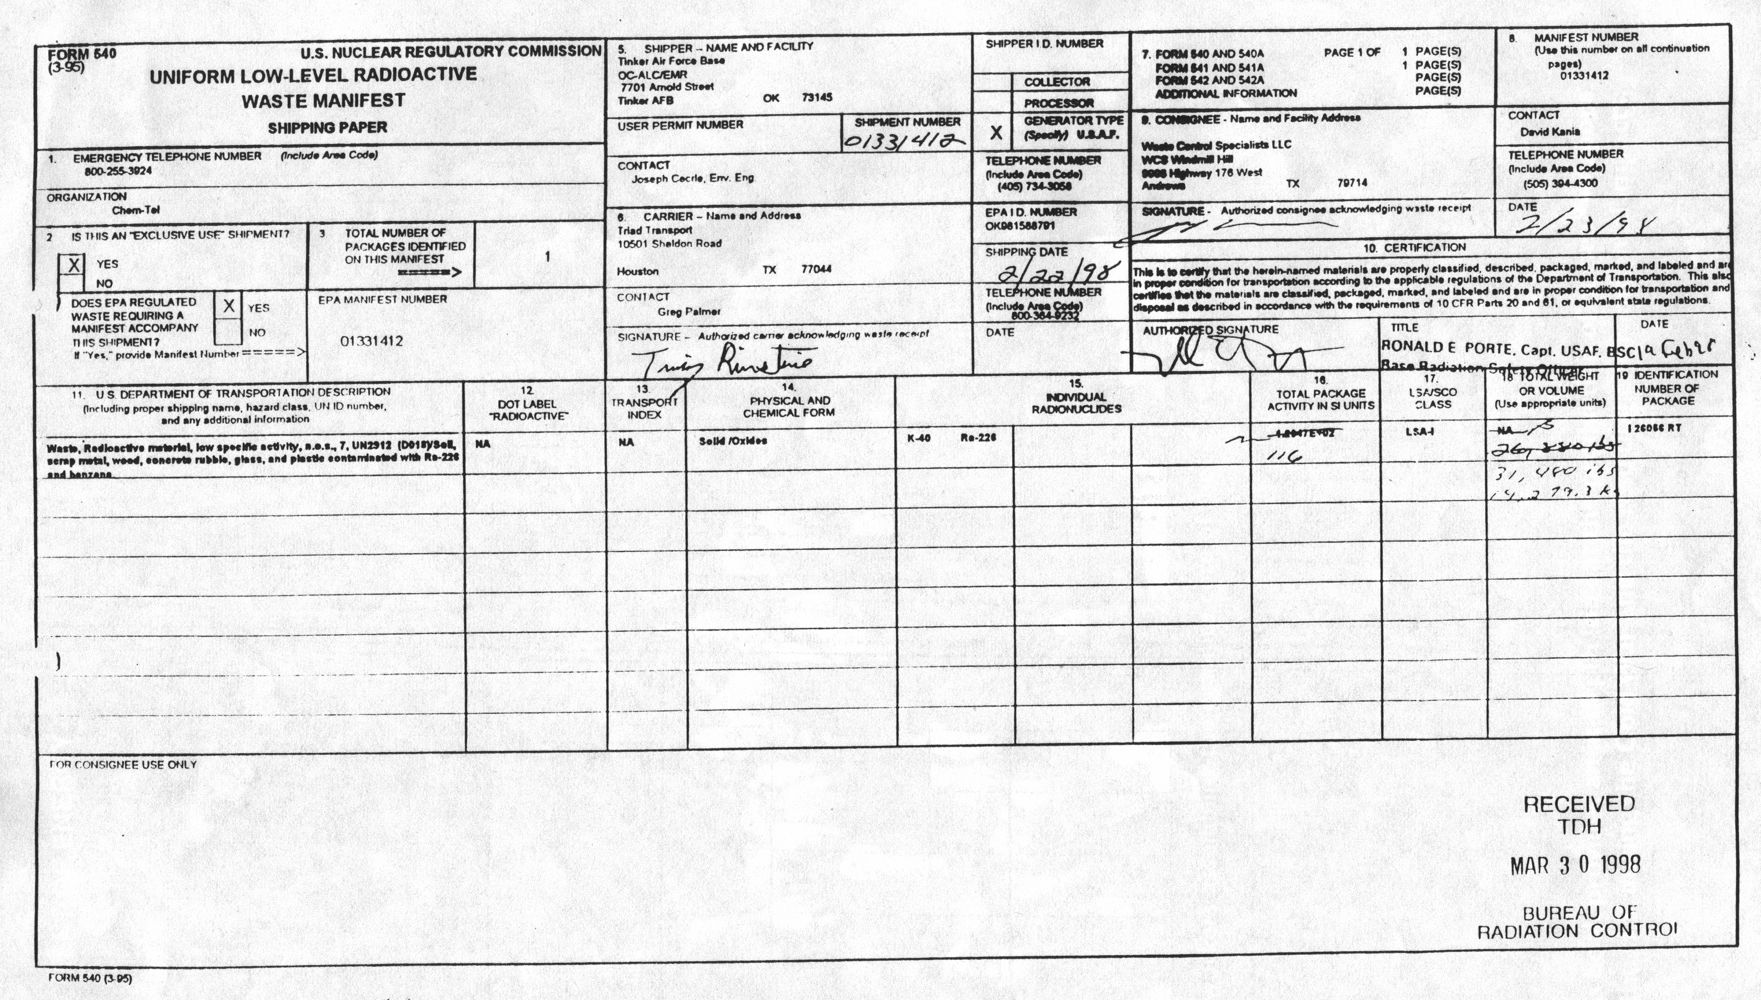 FORM 540
(3-95)
U.S. NUCLEAR REGULATORY COMMISSION
UNIFORM LOW-LEVEL RADIOACTIVE
WASTE MANIFEST
SHIPPING PAPER
1. EMERGENCY TELEPHONE NUMBER (Include Area Code)
800-255-3924
ORGANIZATION
Chem-Tel
2 IS THIS AN "EXCLUSIVE USE" SHIPMENT?
X YES
NO
3 TOTAL NUMBER OF
PACKAGES IDENTIFIED
ON THIS MANIFEST
=====>
1
DOES EPA REGULATED
WASTE REQUIRING A
MANIFEST ACCOMPANY
THIS SHIPMENT?
If "Yes," provide Manifest Number =====>
X YES
NO
EPA MANIFEST NUMBER
01331412
5. SHIPPER -- NAME AND FACILITY
Tinker Air Force Base
OC-ALC/EMR
7701 Arnold Street
Tinker AFB OK 73145
USER PERMIT NUMBER
SHIPMENT NUMBER
01331412
CONTACT
Joseph Cecrle, Env. Eng
6. CARRIER -- Name and Address
Triad Transport
10501 Sheldon Road
Houston TX 77044
CONTACT
Greg Palmer
SIGNATURE -- Authorized carrier acknowledging waste receipt
SHIPPER I D. NUMBER
COLLECTOR
PROCESSOR
X GENERATOR TYPE
(Specify) U.S.A.F.
TELEPHONE NUMBER
(Include Area Code)
(405) 734-3058
EPA I D. NUMBER
OK981588791
SHIPPING DATE
2/22/98
TELEPHONE NUMBER
(Include Area Code)
800-364-9232
DATE
7. FORM 540 AND 540A PAGE 1 OF 1 PAGE(S)
FORM 541 AND 541A 1 PAGE(S)
FORM 542 AND 542A PAGE(S)
ADDITIONAL INFORMATION PAGE(S)
8. MANIFEST NUMBER
(Use this number on all continuation
pages)
01331412
9. CONSIGNEE - Name and Facility Address
Waste Control Specialists LLC
WCS Windmill Hill
9998 Highway 176 West
Andrews TX 79714
CONTACT
David Kania
TELEPHONE NUMBER
(Include Area Code)
(505) 394-4300
SIGNATURE - Authorized consignee acknowledging waste receipt
DATE
2/23/98
10. CERTIFICATION
This is to certify that the herein-named materials are properly classified, described, packaged, marked, and labeled and are
in proper condition for transportation according to the applicable regulations of the Department of Transportation. This also
certifies that the materials are classified, packaged, marked, and labeled and are in proper condition for transportation and
disposal as described in accordance with the requirements of 10 CFR Parts 20 and 61, or equivalent state regulations.
AUTHORIZED SIGNATURE
TITLE
RONALD E PORTE, Capt, USAF, BSC
Base Radiation Safety Officer
DATE
19 Feb 98
11. U S. DEPARTMENT OF TRANSPORTATION DESCRIPTION
(Including proper shipping name, hazard class, UN ID number,
and any additional information
12.
DOT LABEL
"RADIOACTIVE"
13.
TRANSPORT
INDEX
14.
PHYSICAL AND
CHEMICAL FORM
15.
INDIVIDUAL
RADIONUCLIDES
16.
TOTAL PACKAGE
ACTIVITY IN SI UNITS
17.
LSA/SCO
CLASS
18 TOTAL WEIGHT
OR VOLUME
(Use appropriate units)
19 IDENTIFICATION
NUMBER OF
PACKAGE
Waste, Radioactive material, low specific activity, n.o.s., 7, UN2912 (D018)/Soil,
scrap metal, wood, concrete rubble, glass, and plastic contaminated with Ra-226
and benzene
NA
NA
Solid /Oxides
K-40 Ra-226
116
LSA-I
NA
31,480 lbs
14,279.3 k
126066 RT
FOR CONSIGNEE USE ONLY
RECEIVED
TDH
MAR 30 1998
BUREAU OF
RADIATION CONTROL
FORM 540 (3-95)